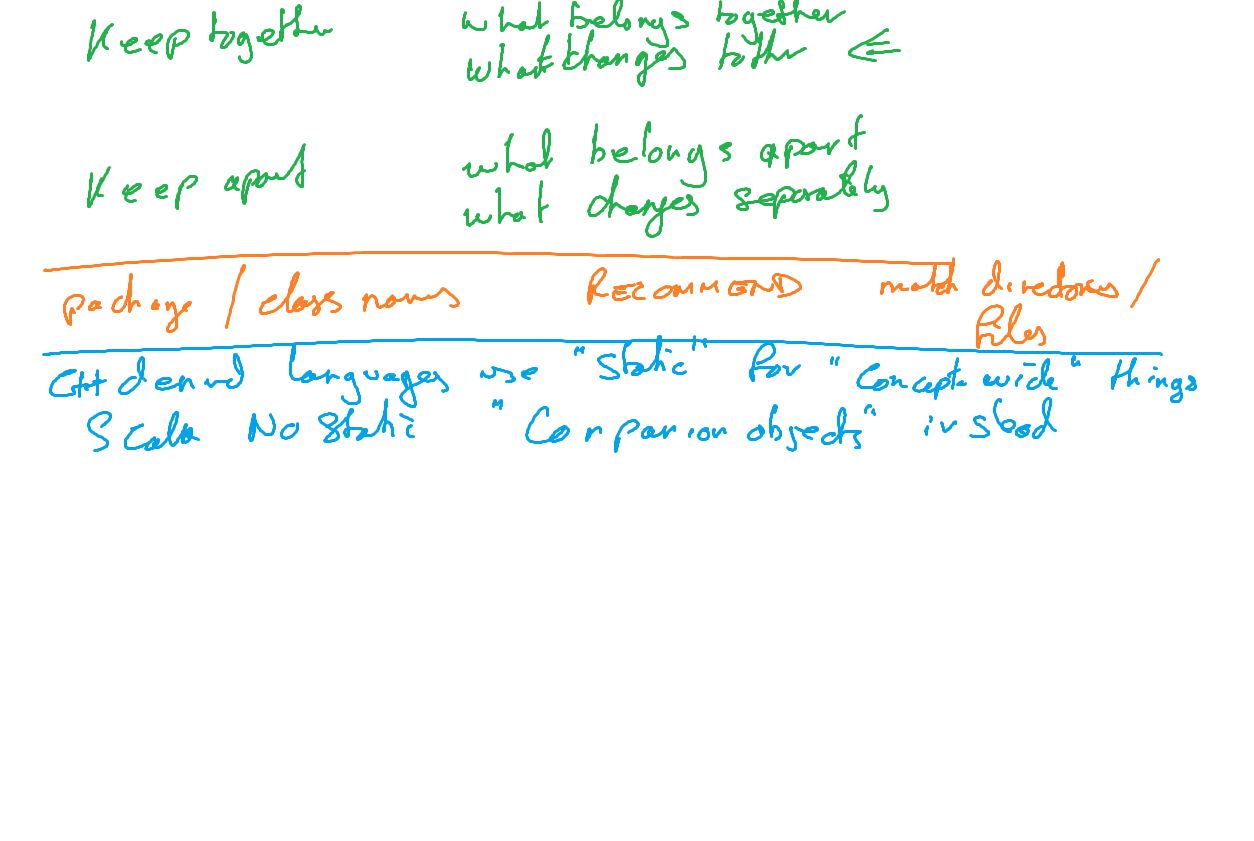 Keep together what belongs together
what changes togther <=
Keep apart what belongs apart
what changes separately
package / class names RECOMMEND match directories /
files
C++ derived languages use "static" for "Concept wide" things
Scala No Static "Companion objects" instead